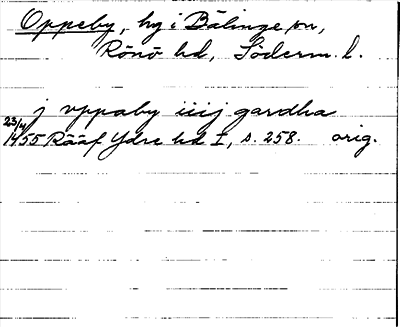 Oppeby, by i Bälinge sn,
Rönö hd, Söderm. l.
j vppaby iiij gardha
23/4
1455 Rääf Ydre hd I, s. 258. orig.